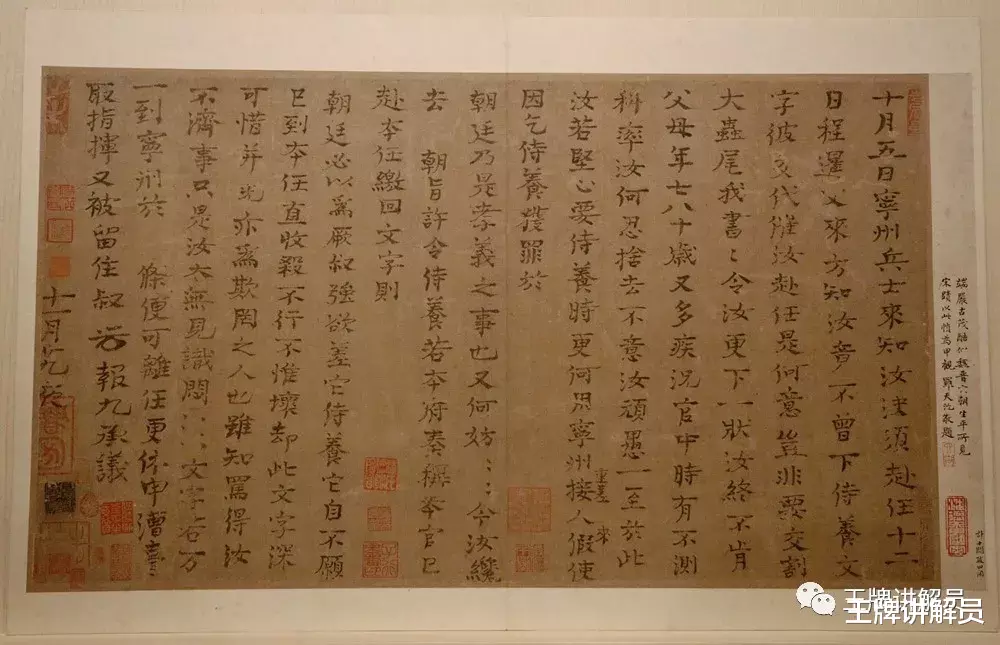 端嚴古茂酷似魏晉六朝生平所見
宋蹟以此幀為甲觀 羅天池敬題
十月五日寧州兵士來知汝決須赴任十二
日程暹父來方知汝竟不曾下侍養文
字彼交代催汝赴任是何意豈非要交割
大蟲尾我書〻令汝更下一狀汝終不肯
父母年七八十歲又多疾況官中時有不測
科率汝何忍捨去不意汝頑愚一至於此
重疊 來
汝若堅心要侍養時更何用寧州接人假使
因乞侍養獲罪於
朝廷乃是孝義之事也又何妨〻〻今汝纔
去 朝旨許令侍養若本府奏稱本官已
赴本任繳回文字則
朝廷必以為厥叔強欲差它侍養它自不願
已到本任直收殺不行不惟壞却此文字深
可惜并光亦為欺罔之人也雖知罵得汝
不濟事只是汝太無見識悶〻〻文字若万
一到寧州於 條便可離任更休申漕臺
取指揮又被留住叔 光 報九承議
十一月
王牌讲解员
王牌讲解员